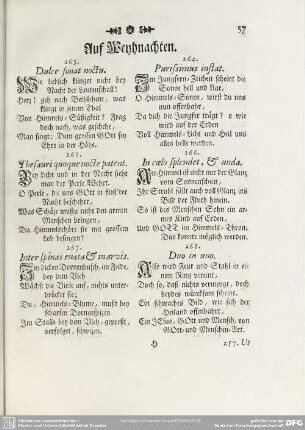 57
Auf Weyhnachten.
263.
Dulce sonat noctu.
Wie lieblich klinget nicht bey
Nacht der Lautenschall!
Herz! geh nach Bethlehem, was
klingt in jenem Thal
Von Himmels-Süßigkeit? Frag
doch nach, was geschicht,
Man singt: Dem grossen Gott sey
Ehre in der Höhe.
265.
Thesauri quoque nocte patent.
Bey Licht und in der Nacht sieht
man der Perle Wehrt.
O Perle, die uns GOtt in finstrer
Nacht beschehrt,
Was Schätz muß nicht den armen
Menschen bringen,
Da Himmelschöre sie mit grossem
Lob besingen?
267.
Inter spinas enata & inarvis.
In dicker Dornenbüsch, im Felde,
bey dem Vieh
Wächst die Viole auf, nichts unter-
drücket sie;
Du, Himmels-Blume, must bey
scharfen Dornenspitzen
Im Stalle bey dem Vieh, gepreßt,
verfolget, schwitzen.
264.
Purissimus instat.
Im Jungfern-Zeichen scheint die
Sonne hell und klar,
O Himmels-Sonne, wirst du uns
nun offenbahr,
Da dich die Jungfer trägt? o wie
wird auf der Erden
Voll Himmels-Licht und Heil uns
alles helle werden.
266.
In cœlo splendet, & unda.
Am Himmel ist nicht nur der Glanz
vom Sonnenschein,
Ihr Strahl fällt auch voll Glanz ins
Bild der Fluth hinein.
So ist des Menschen Sohn ein ar-
mes Kind auf Erden,
Und GOTT im Himmels-Thron.
Das konnte möglich werden.
268.
Duo in uno.
Also wird Feur und Stahl in ei-
nem Ring vereint,
Doch so, daß nichts vermengt, doch
beydes würcksam scheint.
Ein schwaches Bild, wie sich der
Heiland offenbahrt,
Ein JEsus, GOtt und Mensch, von
GOtt- und Menschen-Art.
H
Deutsche Forschungsgemeinschaft
DFG